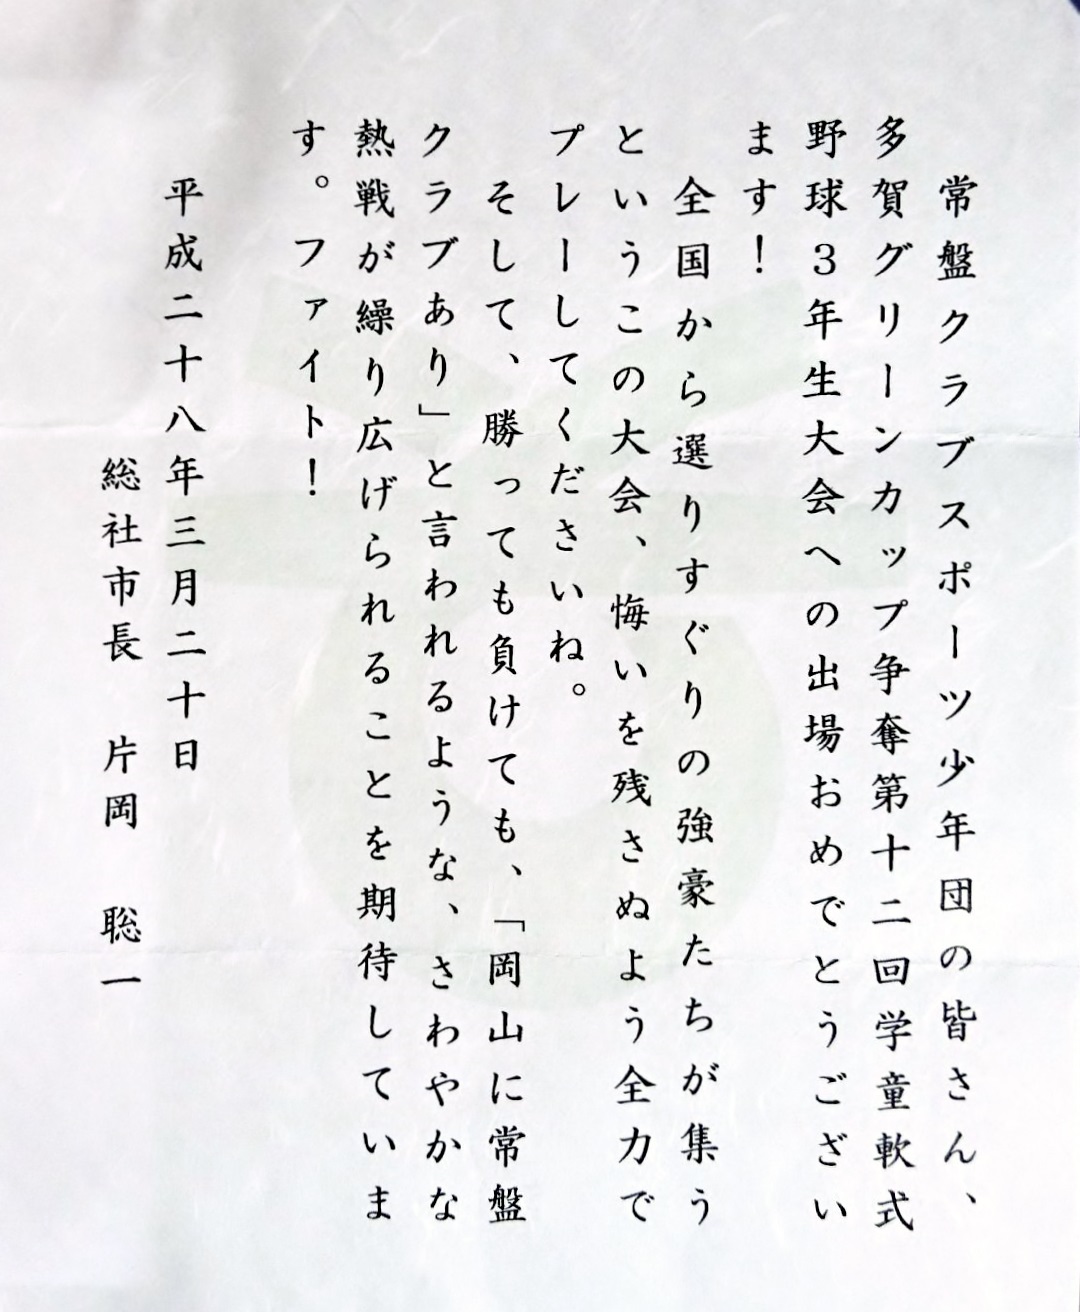 常盤クラブスポーツ少年団の皆さん、
多賀グリーンカップ争奪第十二回学童軟式
野球３年生大会への出場おめでとうござい
ます！
全国から選りすぐりの強豪たちが集う
というこの大会、悔いを残さぬよう全力で
プレーしてくださいね。
そして、勝っても負けても、「岡山に常盤
クラブあり」と言われるような、さわやかな
熱戦が繰り広げられることを期待していま
す。ファイト！
平成二十八年三月二十日
総社市長　片岡　聡一